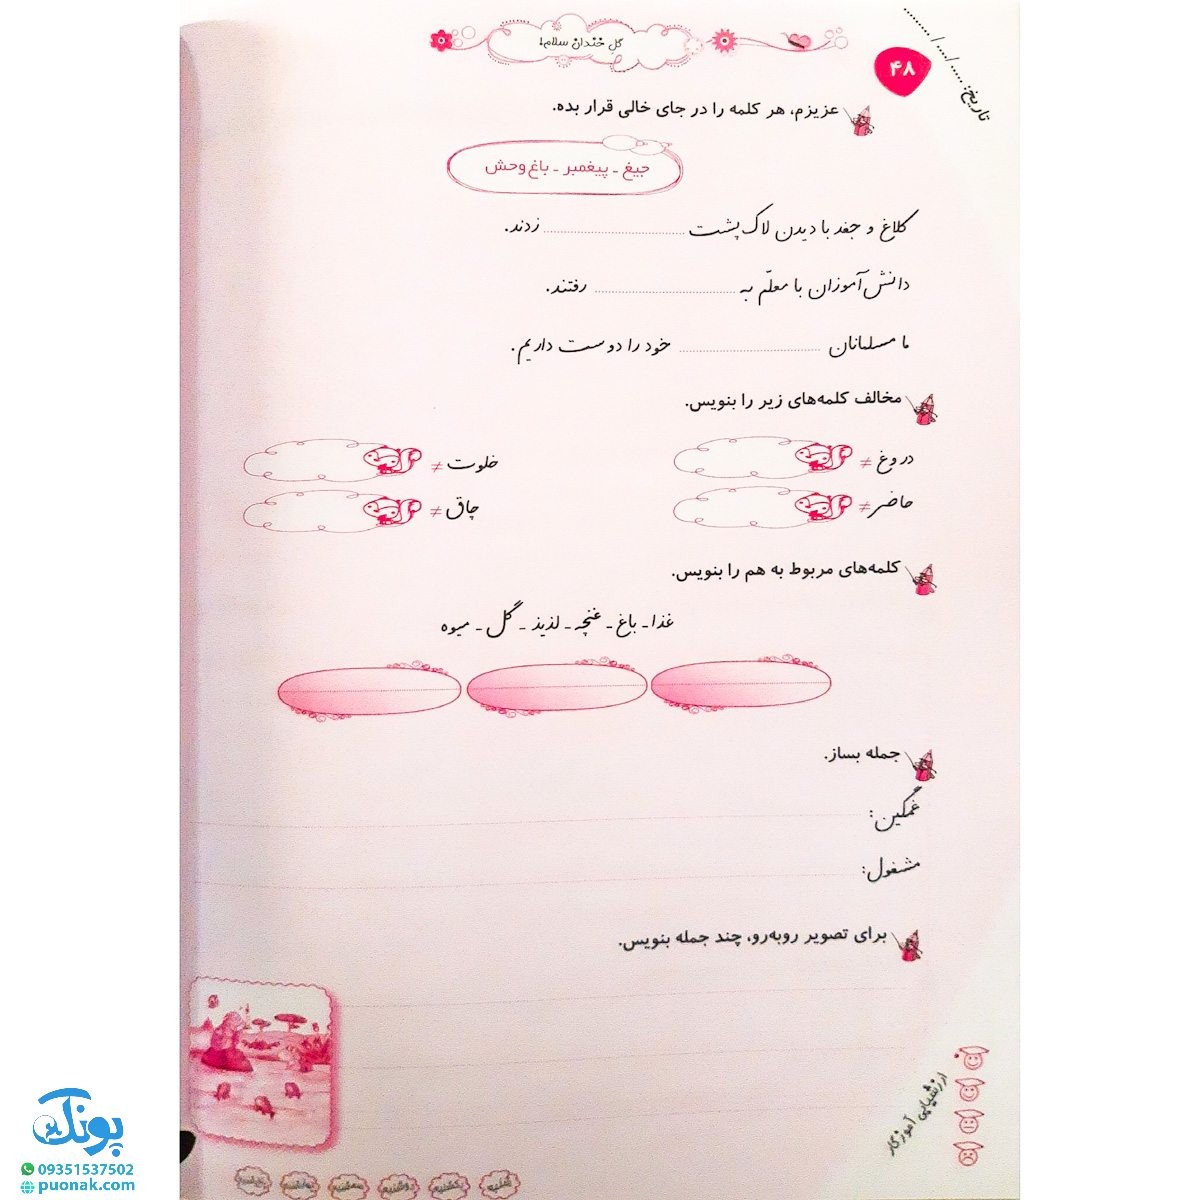 گل خندان سلام!
تاریخ: ...../...../.....
۴۸
عزیزم، هر کلمه را در جای خالی قرار بده.
جیغ - پیغمبر - باغ وحش
کلاغ و جغد با دیدن لاک پشت .................... زدند.
دانش‌آموزان با معلّم به .................... رفتند.
ما مسلمانان .................... خود را دوست داریم.
مخالف کلمه‌های زیر را بنویس.
دروغ ≠ خلوت ≠
حاضر ≠ چاق ≠
کلمه‌های مربوط به هم را بنویس.
غذا - باغ - غنچه - لذیذ - گل - میوه
جمله بساز.
غمگین:
مشغول:
برای تصویر روبه‌رو، چند جمله بنویس.
ارزشیابی آموزگار
شنبه یکشنبه دوشنبه سه‌شنبه چهارشنبه پنجشنبه
پونک
09351537502
puonak.com